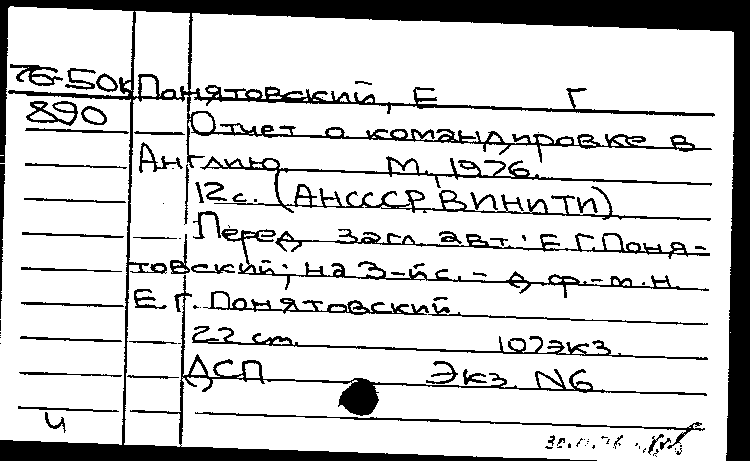 76-50к Понятовский, Е Г
890 Отчет о командировке в
Англию. М., 1976.
12с. (АНСССР. ВИНИТИ)
Перед загл. авт.: Е.Г.Поня-
товский; на 3-йс. - д.ф.-м.н.
Е.Г. Понятовский.
22 ст. 107экз.
ДСП Экз. N6
Ч